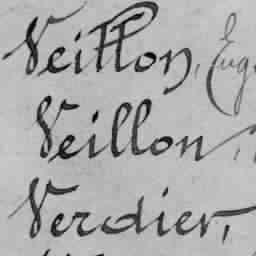 Veillon, Eug
Veillon,
Verdier,